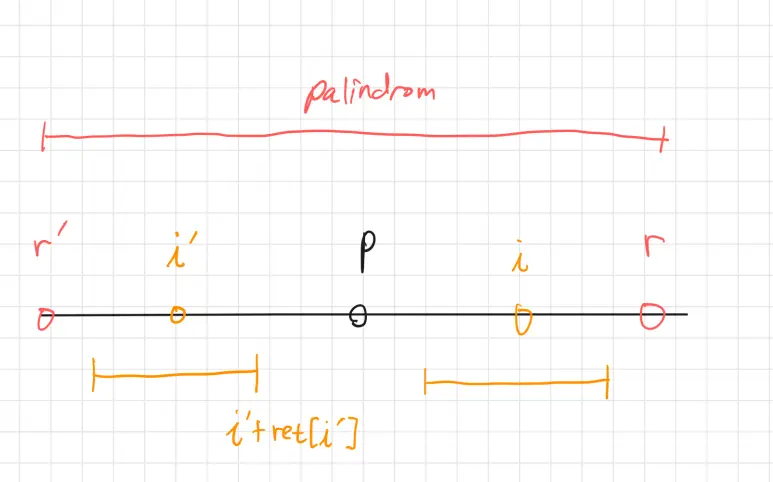 palindrom
r′ i′ p i r
i′+ret[i′]